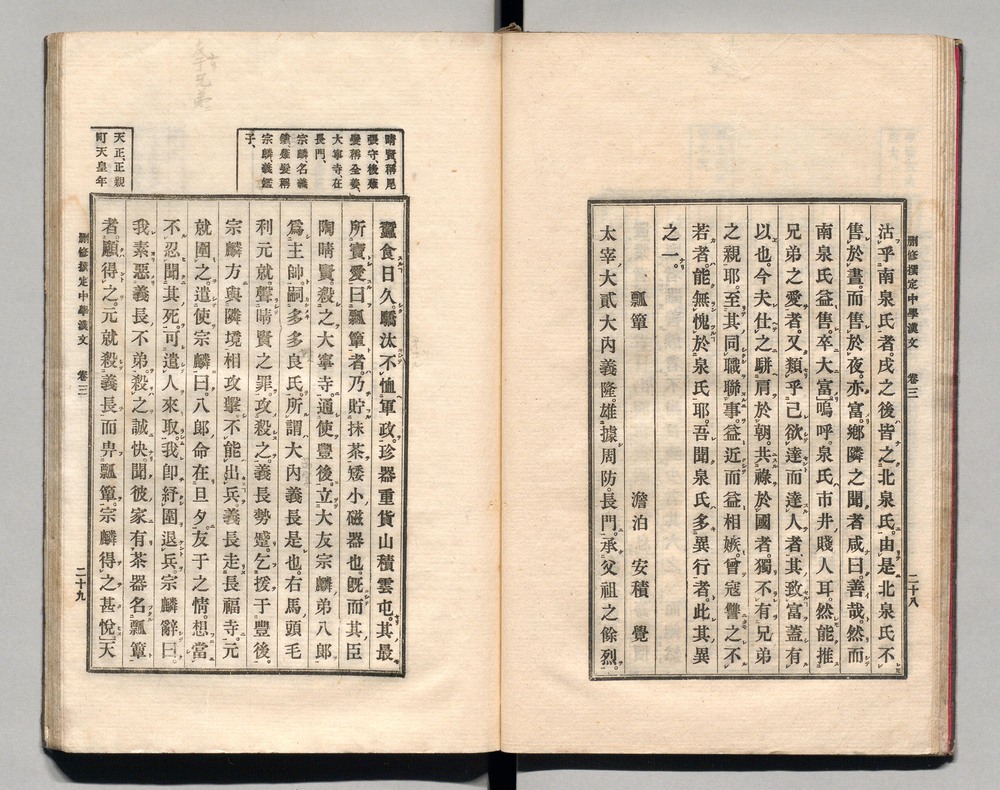 刪修撰定中學漢文 卷三 二十八
沽乎南泉氏者。戌之後皆之北泉氏。由是北泉氏不
售於晝。而售於夜。亦富。鄕隣之聞者咸曰。善哉。然而
南泉氏益售。卒大富。嗚呼。泉氏市井賤人耳。然能推
兄弟之愛者。又類乎己欲達而達人者。其致富蓋有
以也。今夫仕之騈肩於朝。共祿於國者。獨不有兄弟
之親耶。至其同職聯事。益近而益相嫉。曾寇讐之不
若者。能無愧於泉氏耶。吾聞泉氏多異行者。此其異
之一。
瓢簞 澹泊 安積 覺
太宰大貳大內義隆。雄據周防。長門。承父祖之餘烈。
晴賢、稱尾
張守、後薙
髮稱全姜、
大寧寺、在
長門、
宗麟名義
鎭薙髮稱
宗麟義鑑
子、
天正、正親
町天皇年
蠶食日久。驕汰不恤軍政。珍器重貨山積雲屯。其最
所寶愛。曰瓢簞者。乃貯抹茶矮小磁器也。旣而其臣
陶晴賢。殺之大寧寺。通使豐後。立大友宗麟弟八郞
爲主帥。嗣多多良氏。所謂大內義長是也。右馬頭毛
利元就。聲晴賢之罪。攻殺之。義長勢蹙。乞援于豐後。
宗麟方與隣境相攻擊。不能出兵。義長走長福寺。元
就圍之。遣使宗麟曰。八郞命在旦夕。友于之情。想當
不忍聞其死。可遣人來取。我卽紓圍退兵。宗麟辭曰。
我素惡義長不弟。殺之誠快。聞彼家有茶器名瓢簞
者。願得之。元就殺義長。而畀瓢簞。宗麟得之甚悅。天
刪修撰定中學漢文 卷三 二十九